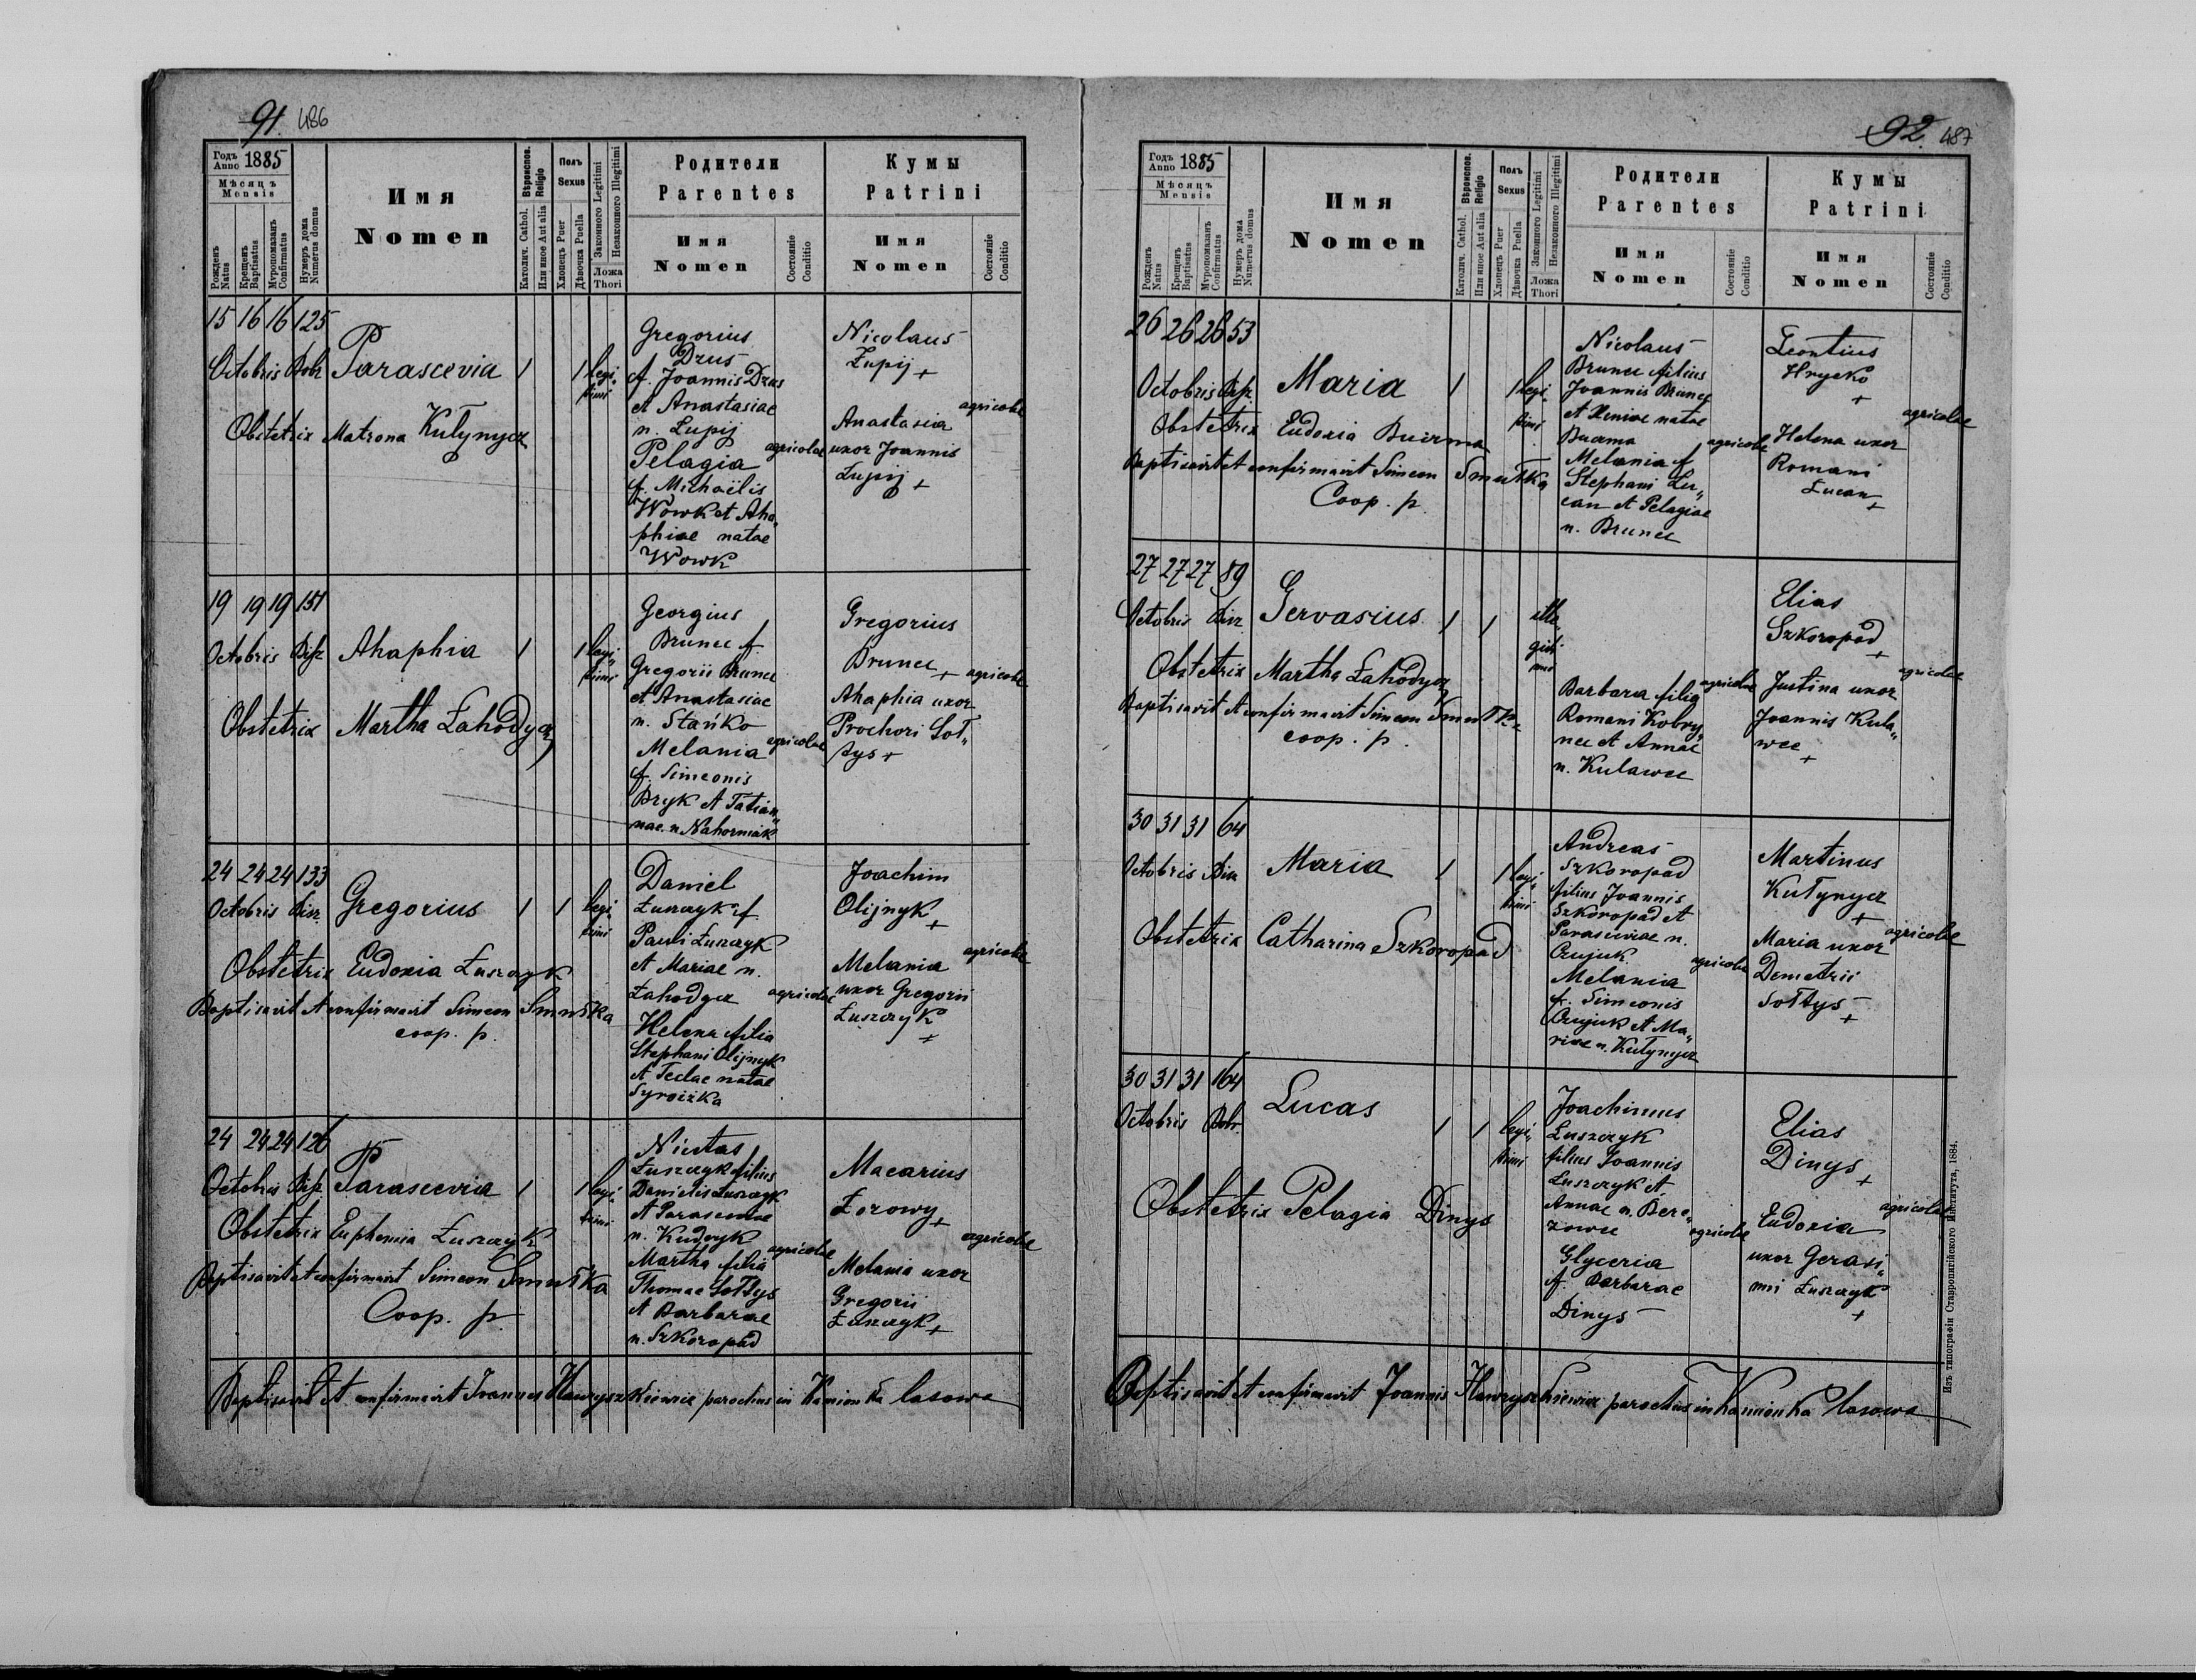 91. 486
Годъ Anno 1885
Мѣсяцъ Mensis
Рожденъ Natus
Крещенъ Baptisatus
Мѵропомазанъ Confirmatus
Нумеръ дома Numerus domus
Имя Nomen
Вѣроиспов. Religio
Католич. Cathol.
Или иное Aut alia
Полъ Sexus
Хлопецъ Puer
Дѣвочка Puella
Законного Legitimi
Незаконного Illegitimi
Ложа Thori
Родители Parentes
Имя Nomen
Состояніе Conditio
Кумы Patrini
Имя Nomen
Состояніе Conditio
15 16 16 125
Octobris
Parascevia 1 1 legi„
timi
Obstetrix Matrona Kułynycz
Gregorius
Dzus
f. Joannis Dzus
et Anastasiae
n. Łupij
Pelagia agricolae
f. Michaëlis
Wowk et Aha„
phiae natae
Wowk
Nicolaus
Łupij +
Anastasia agricolae
uxor Joannis
Łupij +
19 19 19 151
Octobris
Ahaphia 1 1 legi„
timi
Obstetrix Martha Łahodycz
Georgius
Brunec f.
Gregorii Brunec
et Anastasiae
n. Stańko
Melania agricolae
f. Simeonis
Bzyk et Tatian„
nae n. Nahorniak
Gregorius
Brunec + agricolae
Ahaphia uxor
Prochori Soł„
tys +
24 24 24 133
Octobris
Gregorius 1 1 legi„
timi
Obstetrix Eudoxia Łuszczyk
Baptisavit et confirmavit Simeon Smułka
coop. p.
Daniel
Łuszczyk f.
Pauli Łuszczyk
et Mariae n.
Łahodycz agricolae
Helena filia
Stephani Olijnyk
et Teclae natae
Syroiżka
Joachim
Olijnyk +
Melania agricolae
uxor Gregorii
Łuszczyk +
24 24 24 126
Octobris
Parascevia 1 1 legi„
timi
Obstetrix Euphemia Łuszczyk
Baptisavit et confirmavit Simeon Smułka
Coop. p.
Nicetas
Łuszczyk filius
Danielis Łuszczyk
et Parasceviae
n. Kudryk
Martha filia agricolae
Thomae Sołtys
et Barbarae
n. Szkoropad
Macarius
Łozowy +
agricolae
Melania uxor
Gregorii
Łuszczyk +
Baptisavit et confirmavit Joannes Hawryszkiewicz parochus in Kamionka lasowa
92. 487
Годъ Anno 1885
Мѣсяцъ Mensis
Рожденъ Natus
Крещенъ Baptisatus
Мѵропомазанъ Confirmatus
Нумеръ дома Numerus domus
Имя Nomen
Вѣроиспов. Religio
Католич. Cathol.
Или иное Aut alia
Полъ Sexus
Хлопецъ Puer
Дѣвочка Puella
Законного Legitimi
Незаконного Illegitimi
Ложа Thori
Родители Parentes
Имя Nomen
Состояніе Conditio
Кумы Patrini
Имя Nomen
Состояніе Conditio
26 26 26 53
Octobris
Maria 1 1 legi„
timi
Obstetrix Eudoxia Bucrma
Baptisavit et confirmavit Simeon Smułka
Coop. p.
Nicolaus
Brunec filius
Joannis Brunec
et Xeniae natae
agricolae
Melania f.
Stephani Łu„
can et Pelagiae
n. Brunec
Leontius
Hrycko +
agricolae
Helena uxor
Romani
Łucan +
27 27 27 89
Octobris
Gervasius 1 1 ille
giti
mi
Obstetrix Martha Łahodycz
Baptisavit et confirmavit Simeon Smułka
coop. p.
Barbara filia agricolae
Romani Kobry„
nec et Annae
n. Kulawec
Elias
Szkoropad +
Justina uxor agricolae
Joannis Kula„
wec +
30 31 31 64
Octobris
Maria 1 1 legi„
timi
Obstetrix Catharina Szkoropad
Andreas
Szkoropad
filius Joannis
Szkoropad et
Parasceviae n.
Czujuk agricolae
Melania
f. Simeonis
Czujuk et Ma„
riae n. Kułynycz
Martinus
Kułynycz +
Maria uxor agricolae
Demetrii
Sołtys +
30 31 31 164
Octobris
Lucas 1 1 legi„
timi
Obstetrix Pelagia Dinys
Joachimus
Łuszczyk
filius Joannis
Łuszczyk et
Annae n. Bere„
zowec agricolae
Glyceria
f. Barbarae
Dinys
Elias
Dinys +
agricolae
Eudoxia
uxor Gerasi„
mii Łuszczyk +
Baptisavit et confirmavit Joannis Hawryszkiewicz parochus in Kamionka lasowa
Изъ типографіи Ставропигійского Института, 1884.